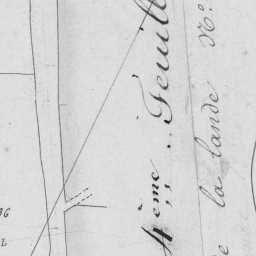 4ème Feuille
de la lande N°
36
L